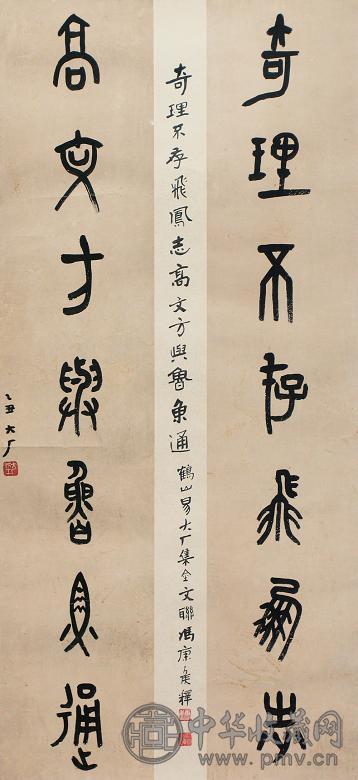 奇理不存飛鳳志
奇理不存飛鳳志高文方與魯魚通 鶴山易大厂集金文聯馮康矦釋
高文方與魯魚通
乙丑大厂
中华收藏网
www.pmv.cn